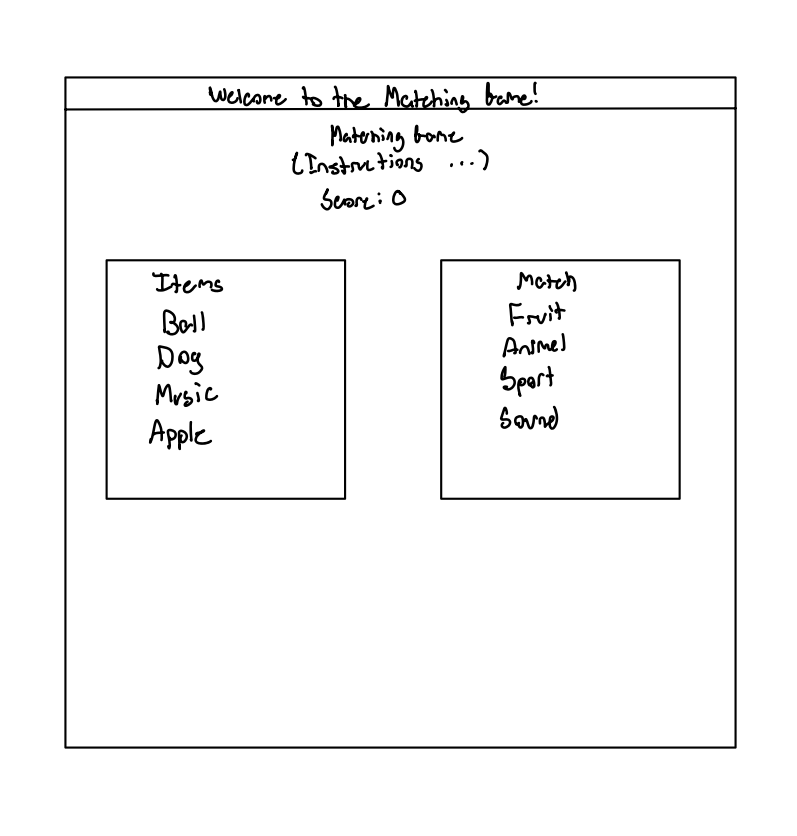 Welcome to the Matching Game!
Matching Game
(Instructions ...)
Score: 0
Items
Ball
Dog
Music
Apple
Match
Fruit
Animal
Sport
Sound